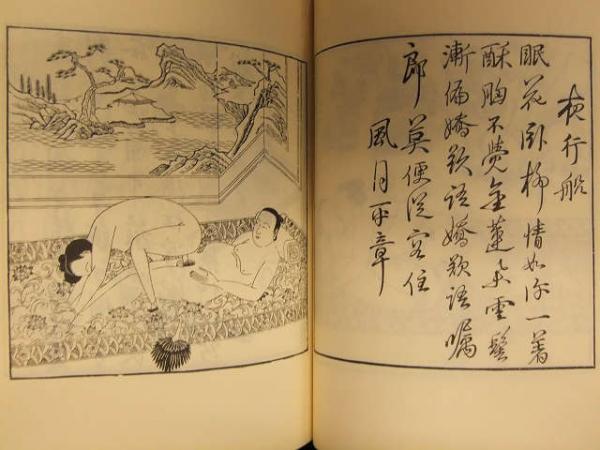 夜行船
眠花臥柳情如許一著
酥胸不覺金蓮舉雲鬢
漸偏嬌欵語嬌欵語囑
郎莫便從容住
風月平章